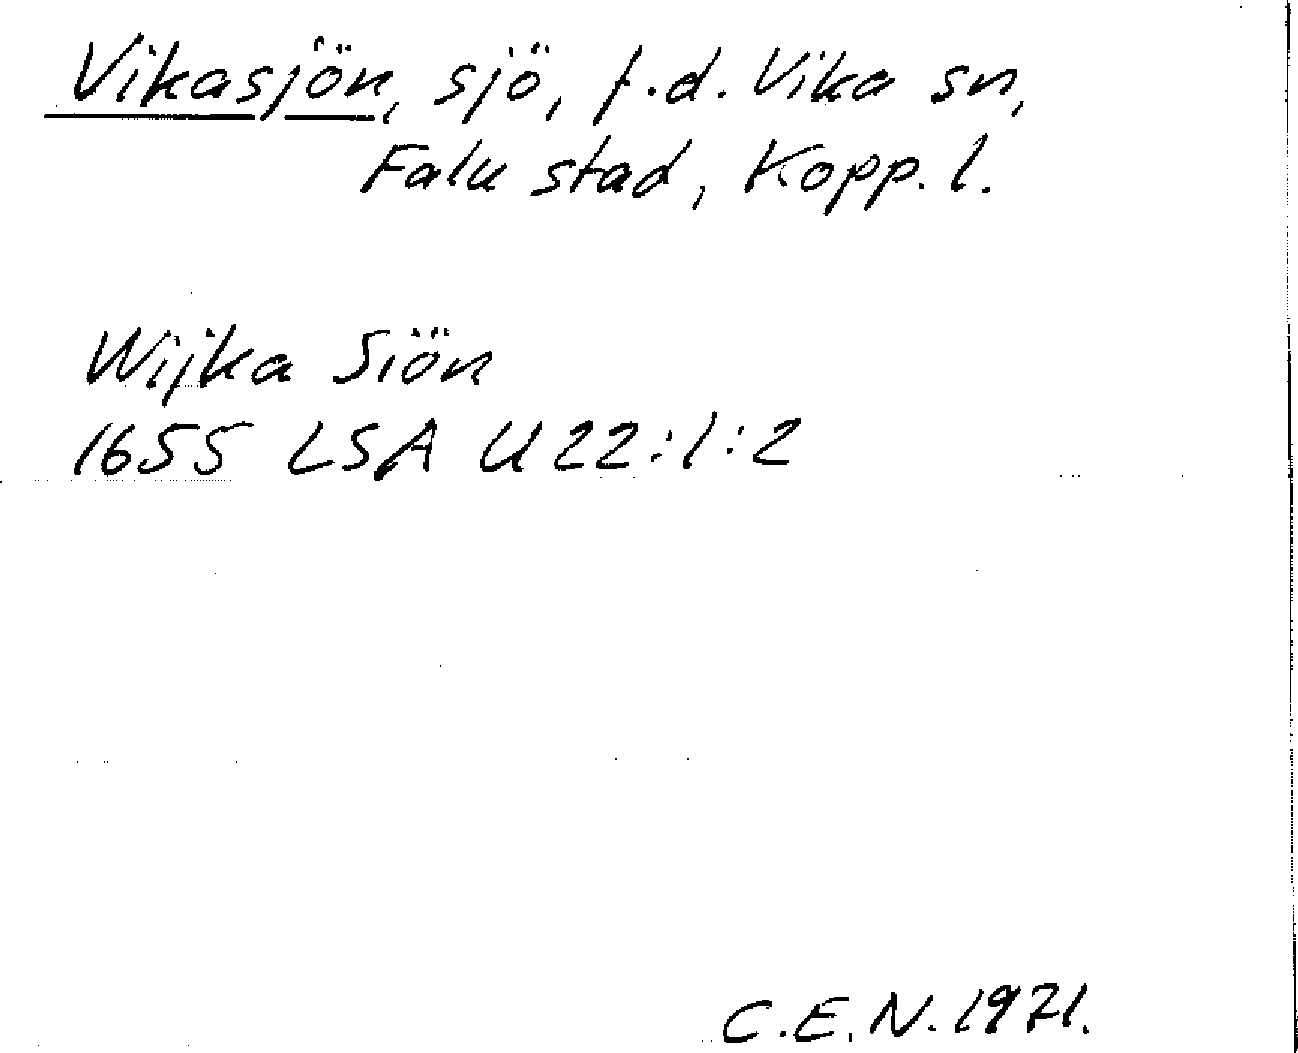 Vikasjön, sjö, f.d. Vika sn,
Falu stad, Kopp. l.
Wijka Siön
1655 LSA U22:1:2
C.E.N. 1971.